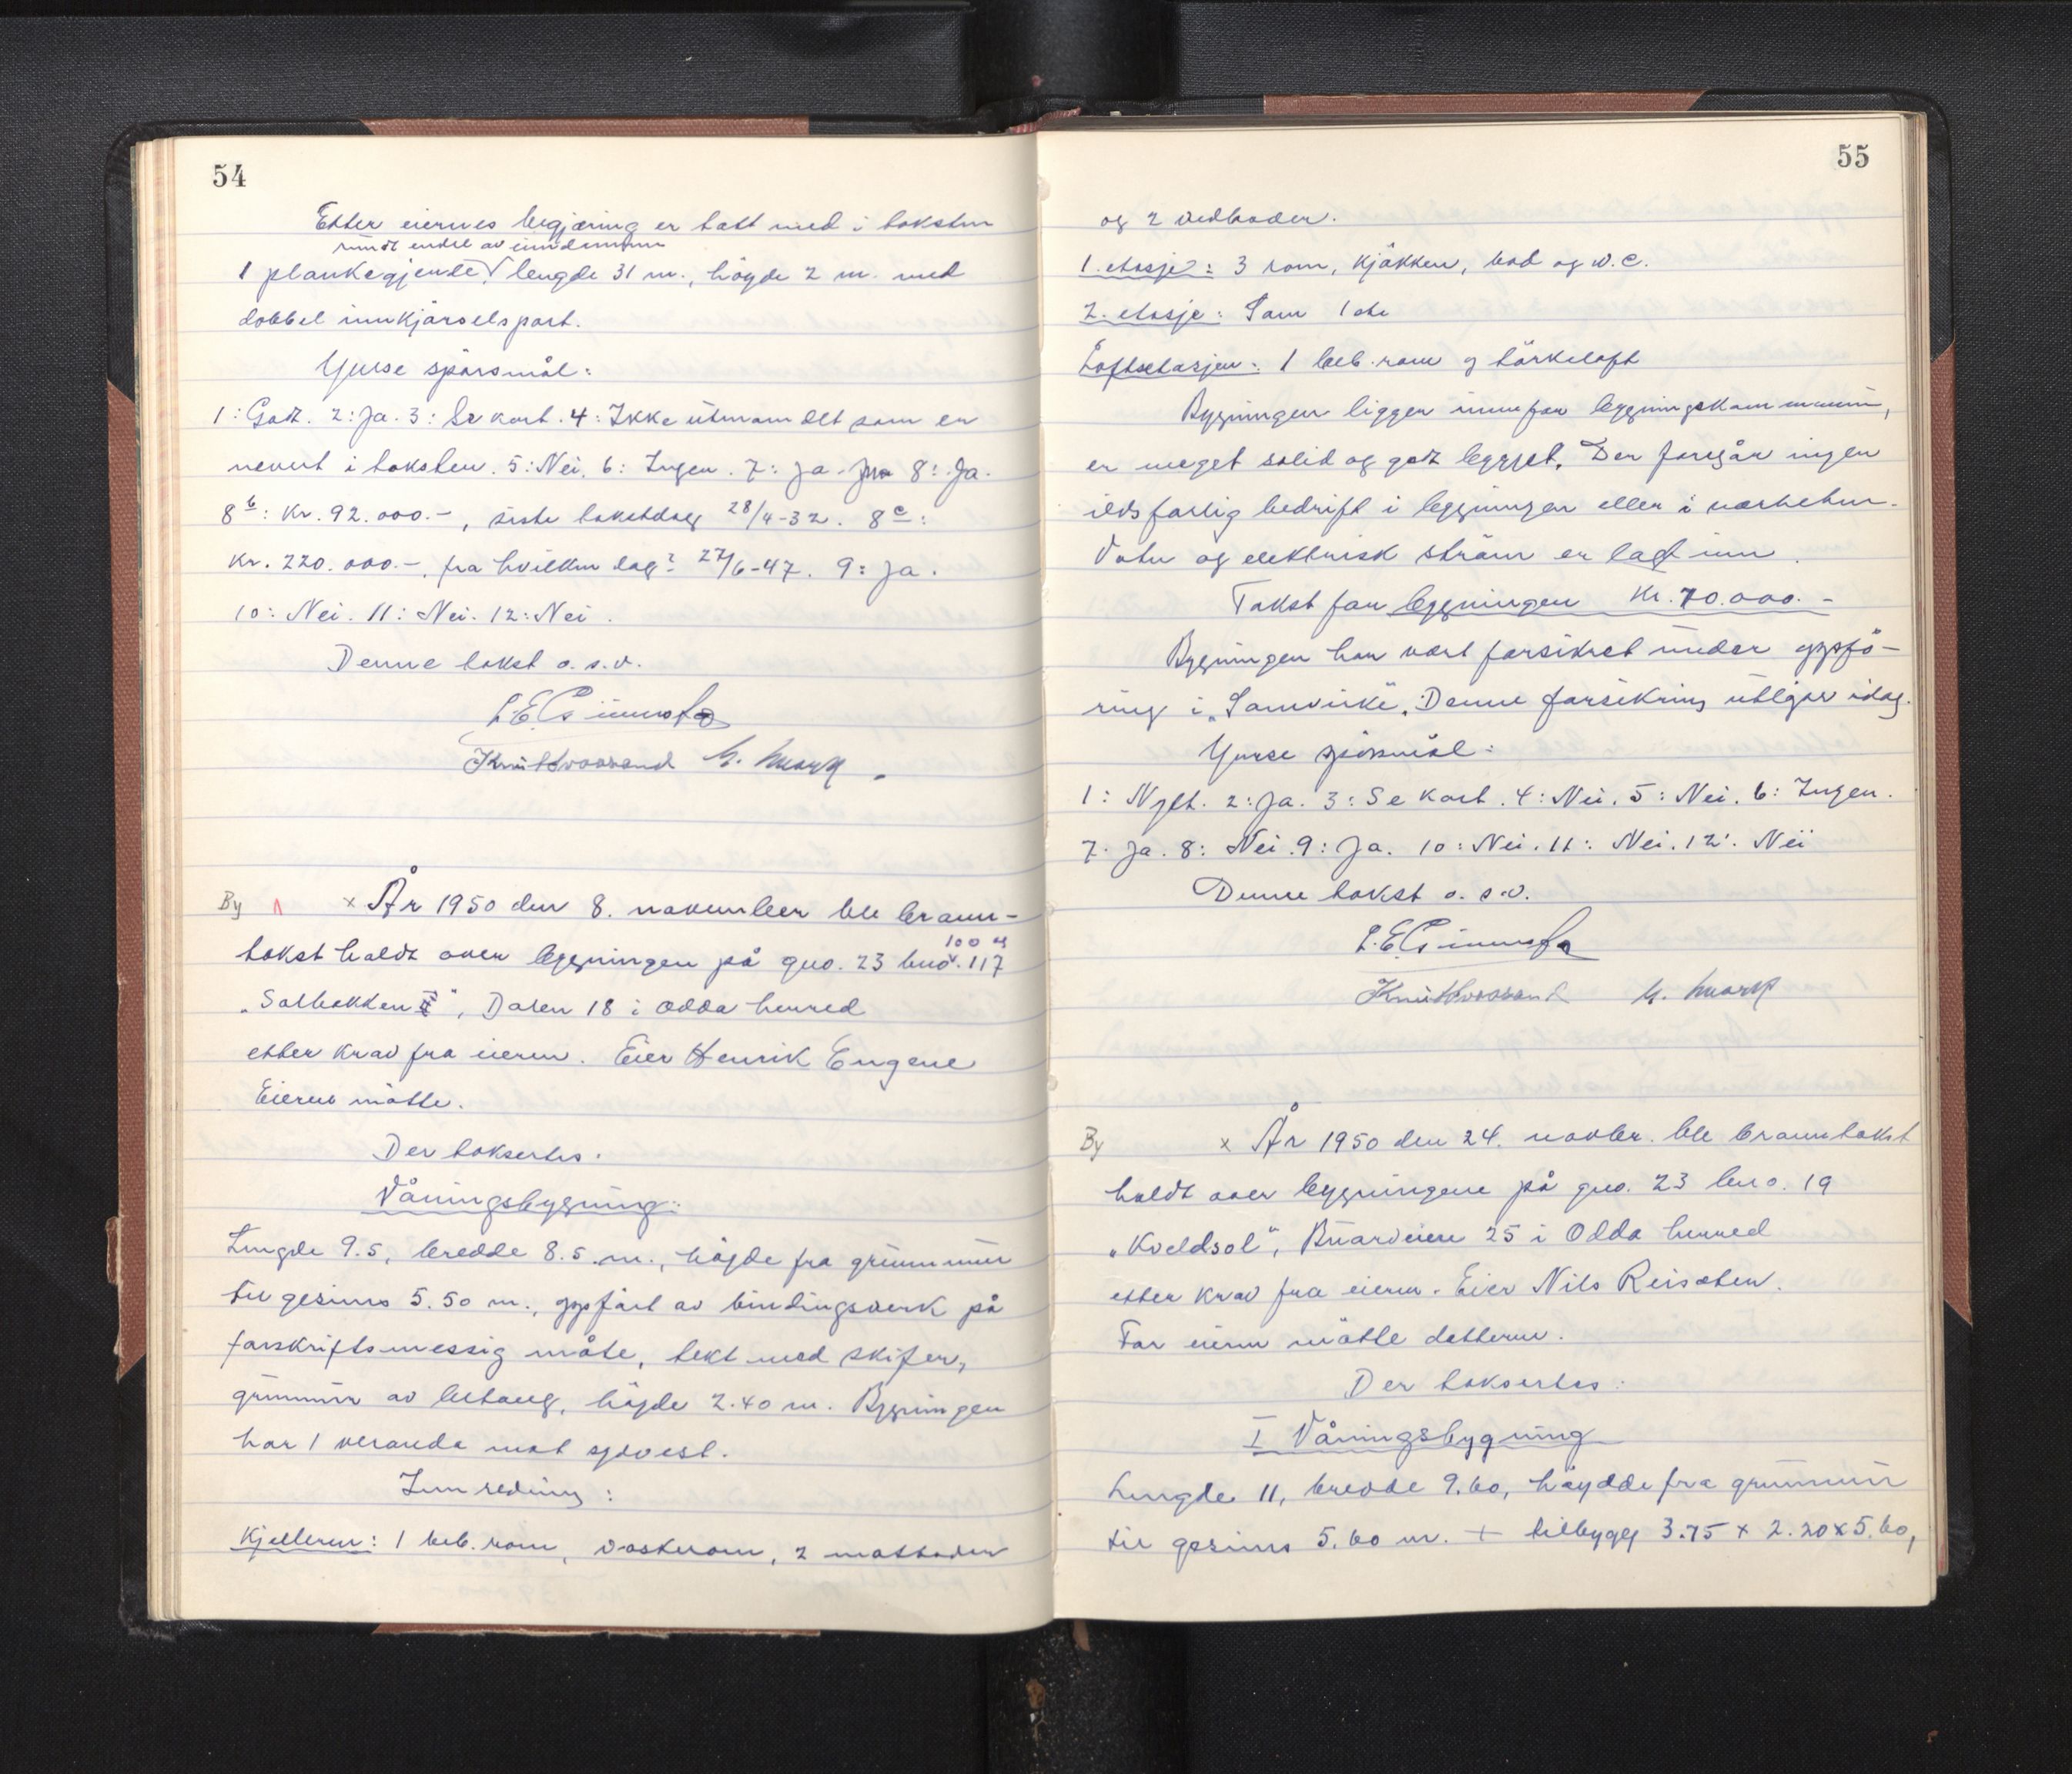 54
Etter eiernes begjæring er tatt med i taksten
rundt endel av eiendommen
1 plankegjerde V lengde 31 m., høyde 2 m. med
dobbel innkjørselsport.
Ymse spørsmål:
1: Godt. 2: Ja. 3: Se kart. 4: Ikke utenom det som er
nevnt i taksten. 5: Nei. 6: Ingen. 7: Ja. 8: Ja.
8b: Kr. 92.000.-, siste takstdag 28/4-32. 8c:
Kr. 220.000.-, fra hvilken dag? 27/6-47. 9: Ja.
10: Nei. 11: Nei. 12: Nei.
Denne takst o.s.v.
By x År 1950 den 8. november ble brann-
100 og
takst holdt over bygningen på gno. 23 bno. 117
„Solbakken", Dalen 18 i Odda herred
etter krav fra eieren. Eier Henrik Eugene
Eieren møtte.
Der taksertes:
Våningsbygning:
Lengde 9.5, bredde 8.5 m., høyde fra grunnmur
til gesims 5.50 m., oppført av bindingsverk på
forskriftsmessig måte, tekt med skifer,
grunnmur av betong, høyde 2.40 m. Bygningen
har 1 veranda mot sydvest.
Innredning:
Kjelleren: 1 beb. rom, vaskerom, 2 matboder
55
og 2 vedboder.
1. etasje: 3 rom, kjøkken, bad og w.c.
2. etasje: Som 1ste
Loftsetasjen: 1 beb. rom og tørkeloft
Bygningen ligger innefor bygningskommunen,
er meget solid og godt bygget. Der foregår ingen
ildsfarlig bedrift i bygningen eller i nærheten.
Vatn og elektrisk strøm er lagt inn.
Takst for bygningen Kr. 70.000.-
Bygningen har vært forsikret under oppfø-
ring i „Samvirke". Denne forsikring utløper idag.
Ymse spørsmål:
1: Nytt. 2: Ja. 3: Se kart. 4: Nei. 5: Nei. 6: Ingen.
7: Ja. 8: Nei. 9: Ja. 10: Nei. 11: Nei. 12: Nei
Denne takst o.s.v.
By x År 1950 den 24. novbr. ble branntakst
holdt over bygningene på gno. 23 bno. 19
„Kveldsol", Buarveien 25 i Odda herred
etter krav fra eieren. Eier Nils Reisæter.
For eieren møtte datteren.
Der taksertes:
I Våningsbygning
Lengde 11, bredde 9.60, høydde fra grunnmur
til gesims 5.60 m. + tilbygg 3.75 x 2.20 x 5.60,